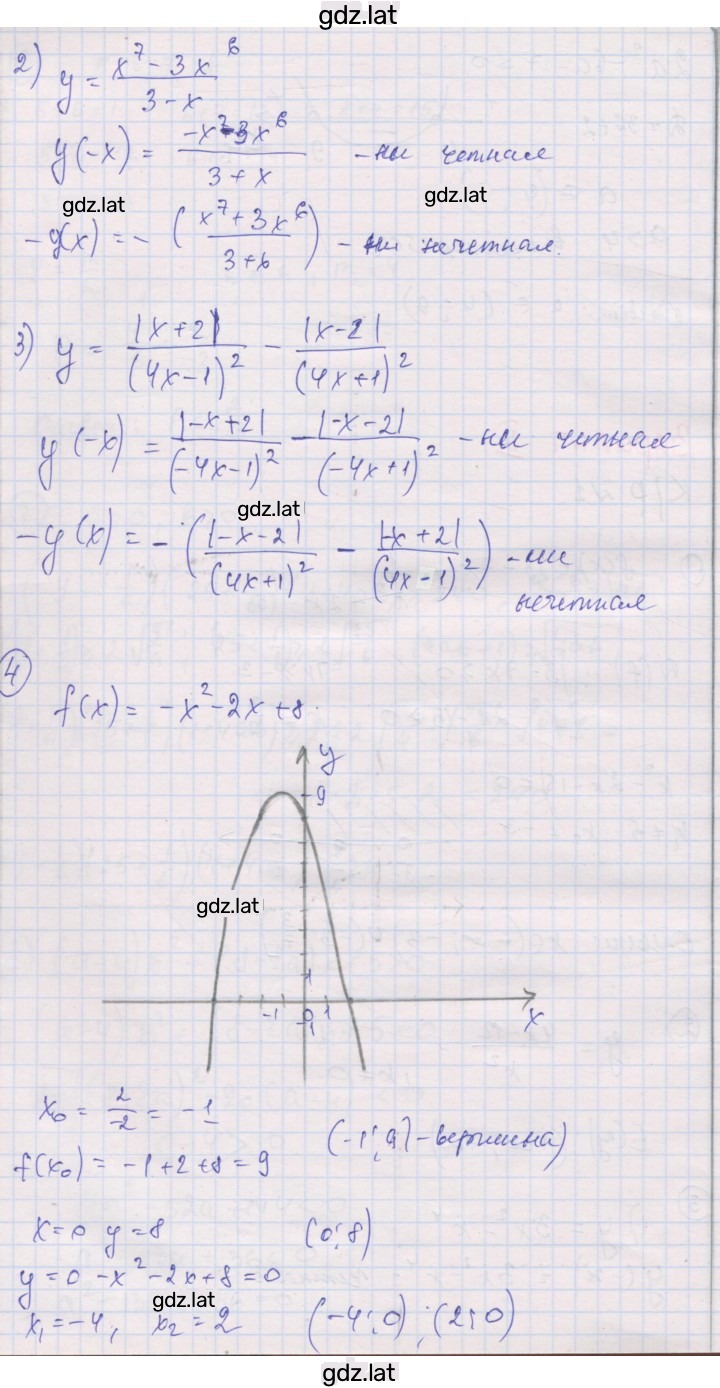 gdz.lat
2) y = (x⁷ - 3x⁶)/(3 - x)
y(-x) = (-x⁷-3x⁶)/(3 + x) - ни четная
gdz.lat gdz.lat
-y(x) = - ((x⁷+3x⁶)/(3+x)) - ни нечетная.
3) y = |x+2|/(4x-1)² - |x-2|/(4x+1)²
y(-x) = |-x+2|/(-4x-1)² - |-x-2|/(-4x+1)² - ни четная
gdz.lat
-y(x) = - (|-x-2|/(4x+1)² - |-x+2|/(4x-1)²) - ни
нечетная
4
f(x) = -x²-2x+8.
y
9
gdz.lat
1
-1 0 1
-1
x
x₀ = 2/-2 = -1
(-1; 9) - вершина)
f(x₀) = -1+2+8=9
x=0 y=8 (0;8)
y=0 -x²-2x+8=0
gdz.lat
x₁=-4, x₂=2 (-4;0) ; (2;0)
gdz.lat